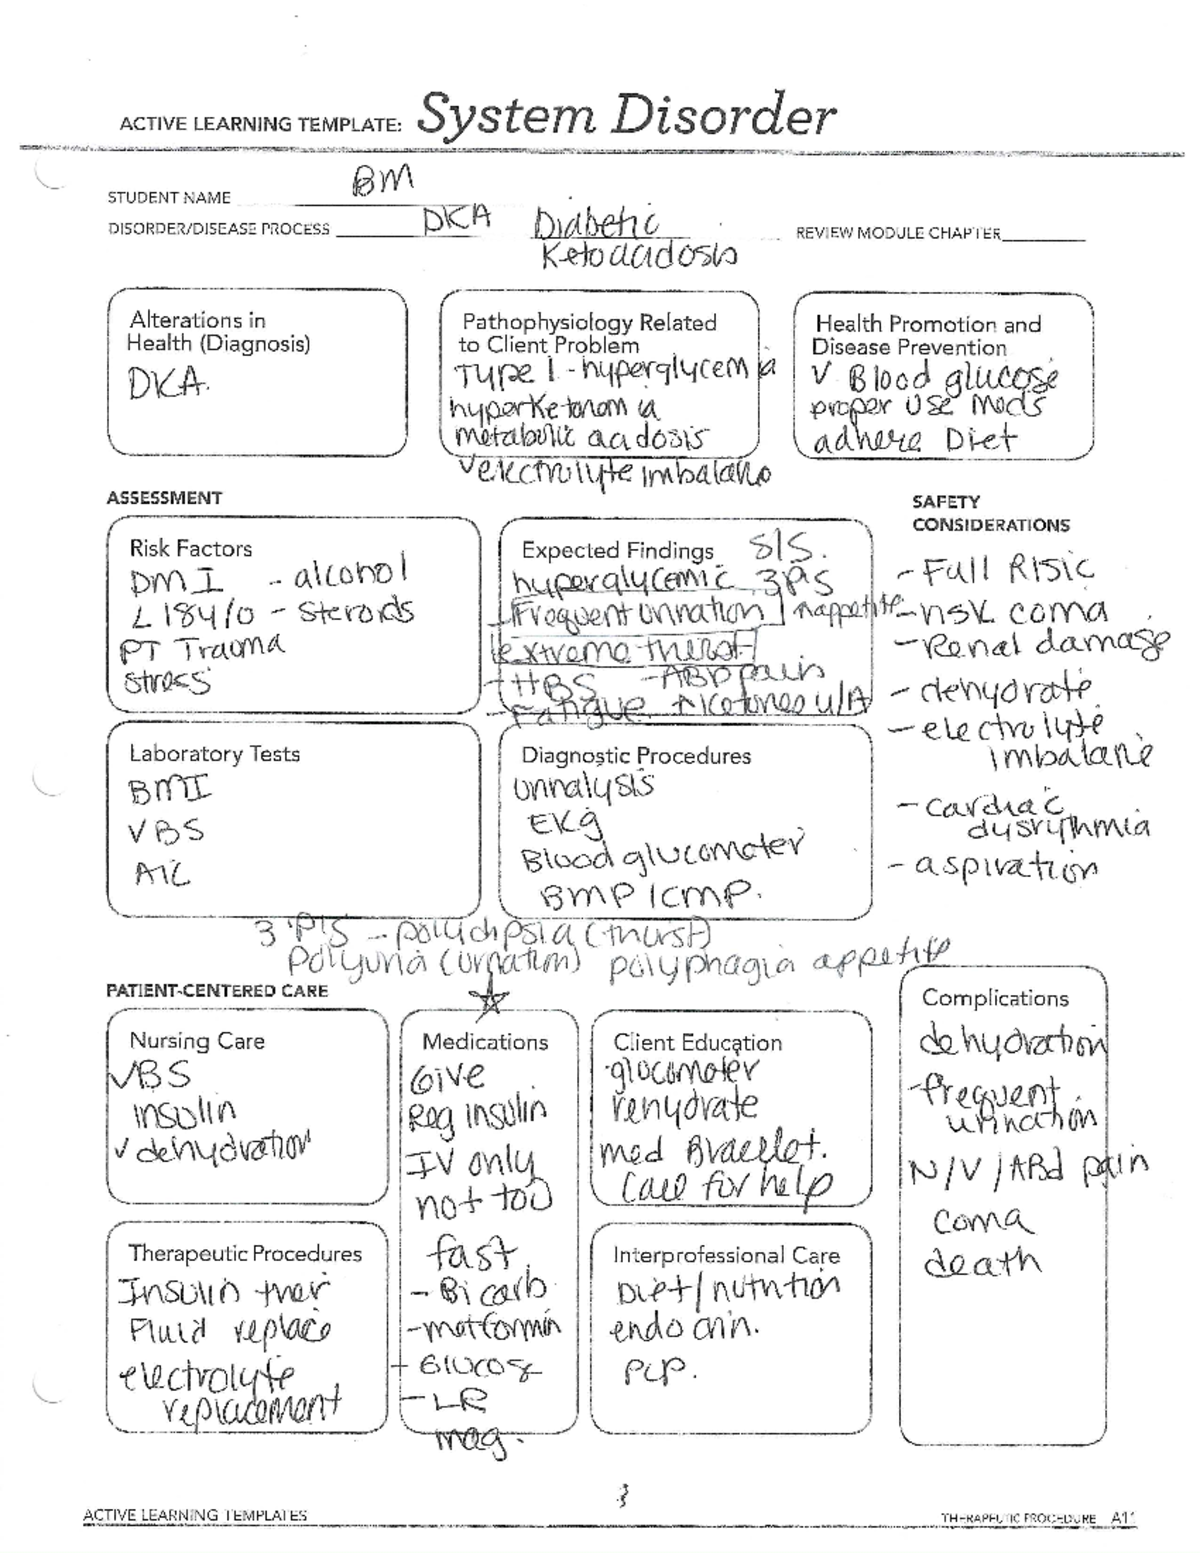 ACTIVE LEARNING TEMPLATE: System Disorder
STUDENT NAME BM
DISORDER/DISEASE PROCESS DKA Diabetic
Ketoacidosis
REVIEW MODULE CHAPTER
Alterations in
Health (Diagnosis)
DKA.
Pathophysiology Related
to Client Problem
Type 1 - hyperglycemia
hyperketonomia
metabolic acidosis
✓ electrolyte imbalanc
Health Promotion and
Disease Prevention
✓ Blood glucose
proper use meds
adhere Diet
ASSESSMENT
Risk Factors
DM I - alcohol
L 184/0 - steroids
PT Trauma
stress
Expected Findings S/S.
hyperglycemic 3 P's
- Frequent urination appetite
extreme thirst
- ↑↑BS - ABD pain
- Fatigue ↑ Ketones u/A
SAFETY
CONSIDERATIONS
- Fall Risk
- risk coma
- Renal damage
- dehydrate
- electrolyte
imbalane
- cardiac
dysrythmia
- aspiration
Laboratory Tests
BMI
VBS
A1C
Diagnostic Procedures
urinalysis
EKg
Blood glucometer
BMP/CMP.
3 P'S - polydipsia (thirst)
Polyuria (urination) polyphagia appetite
PATIENT-CENTERED CARE
Nursing Care
✓BS
insulin
✓ dehydration
Medications
Give
Reg insulin
IV only
not too
fast
- Bicarb
- metformin
+ Glucose
- LR
mag.
Client Education
glucometer
rehydrate
med Bracelet.
Call for help
Complications
dehydration
- frequent
urination
N/V/ABd pain
coma
death
Therapeutic Procedures
Insulin ther
Fluid replace
electrolyte
replacement
Interprofessional Care
Diet/nutrition
endocrin.
PCP.
ACTIVE LEARNING TEMPLATES
THERAPEUTIC PROCEDURE A11